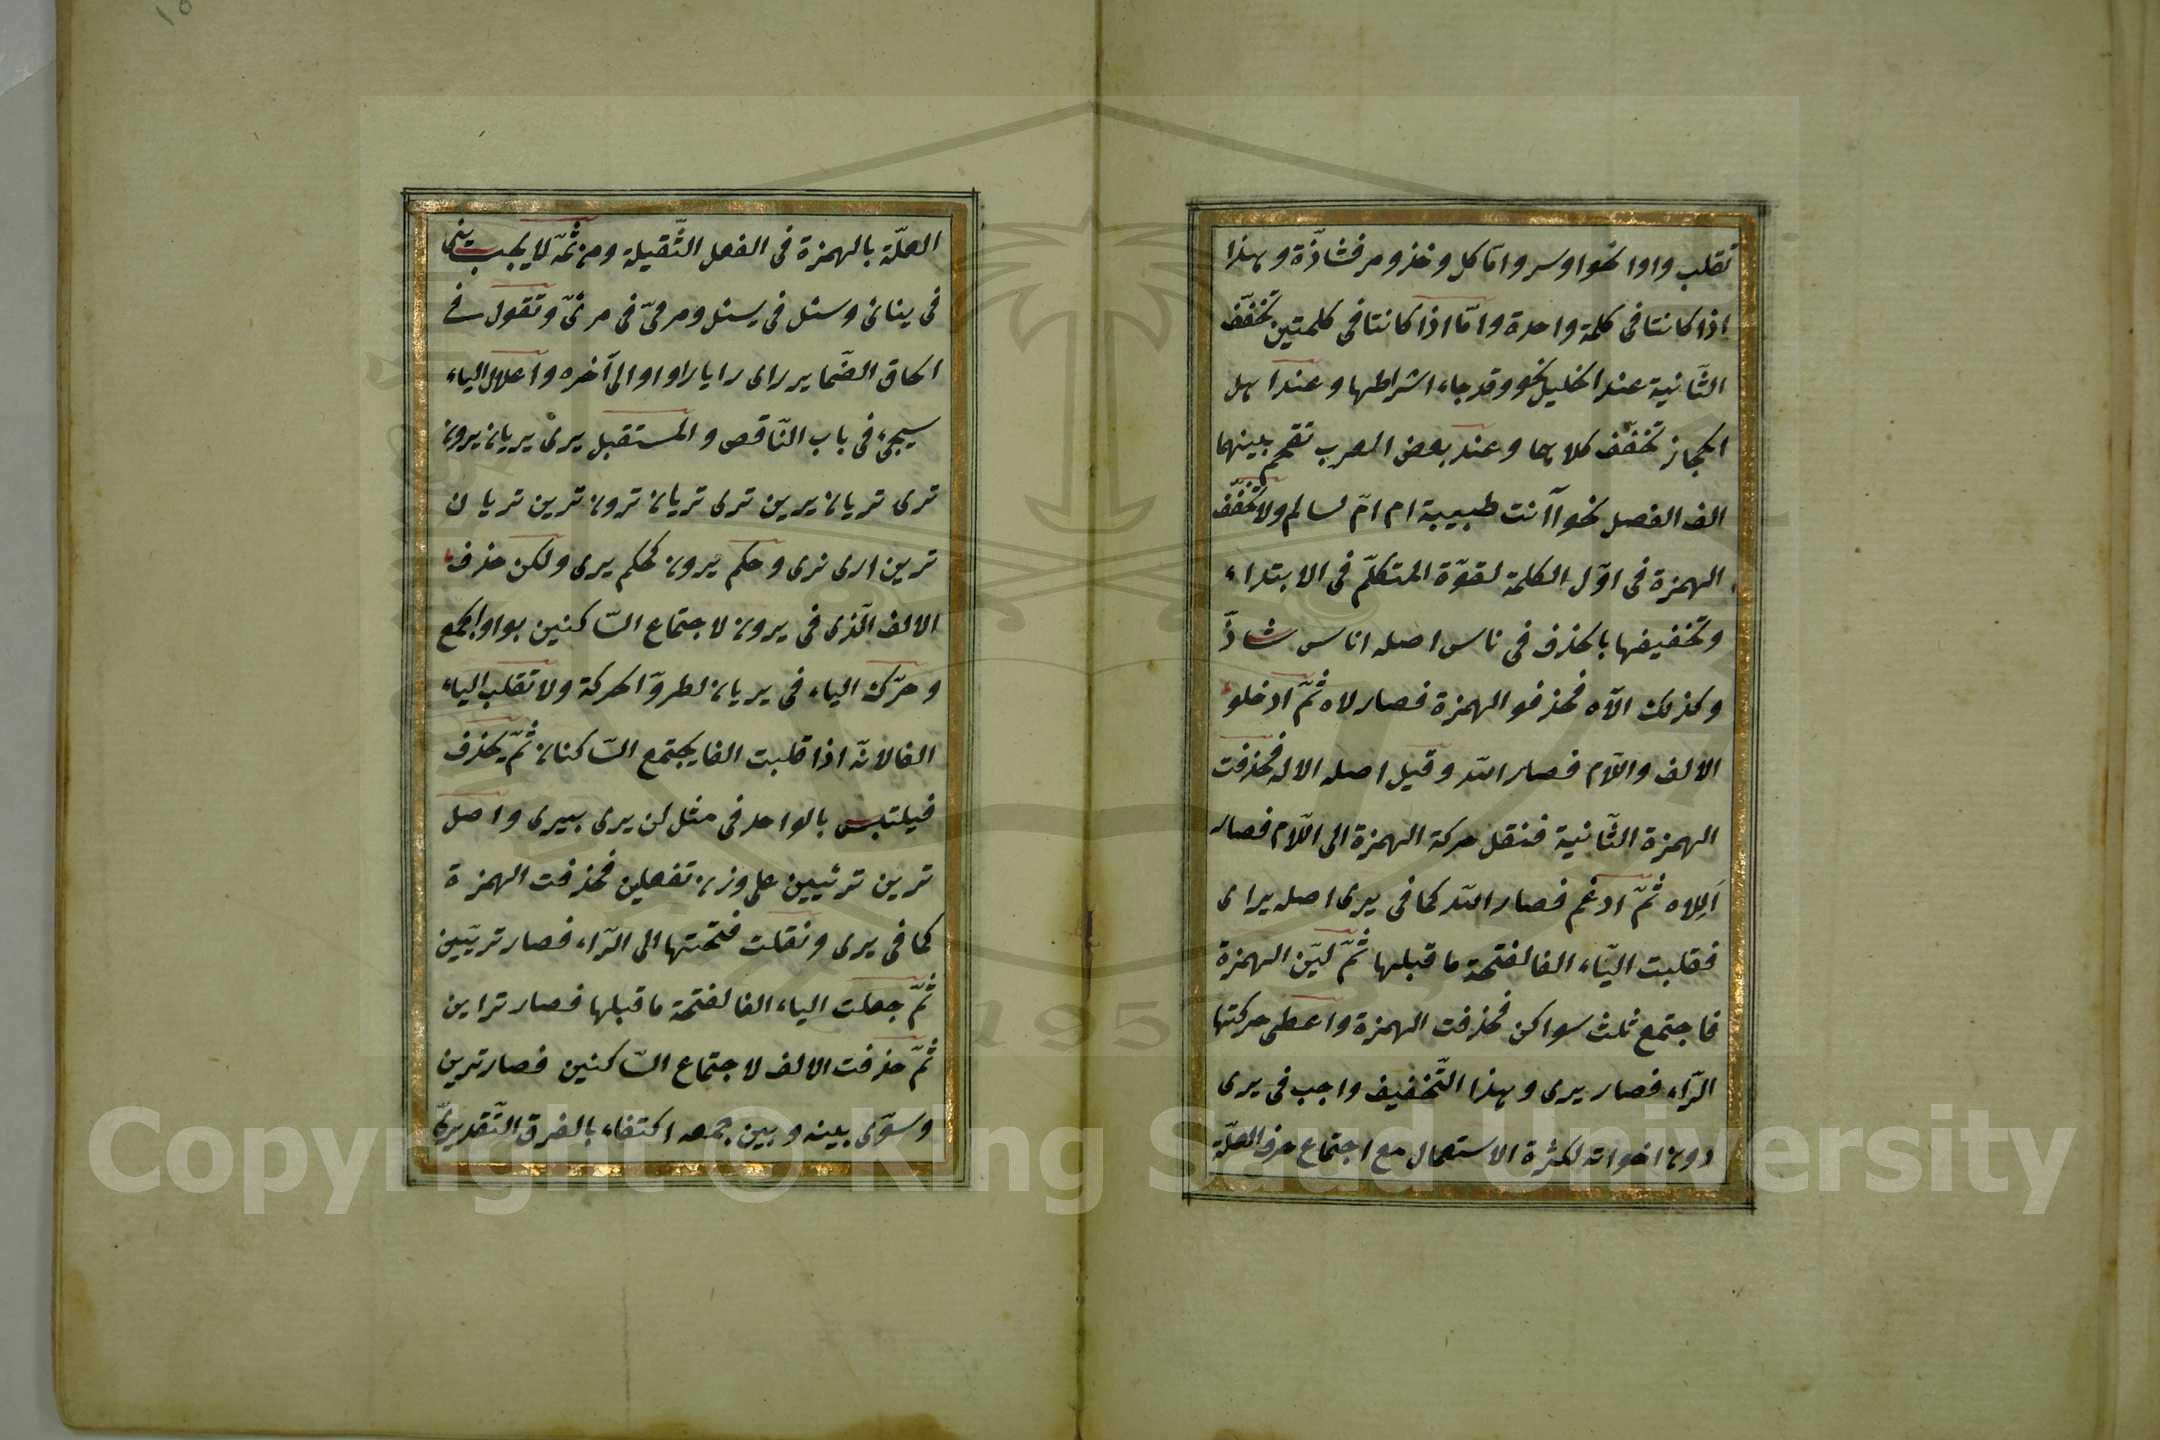 تقلب واوا نحو اوسر واما كل وخذ ومر فشاذّة وهذا
اذا كانتا فى كلمة واحدة وامّا اذا كانتا فى كلمتين تخفّف
الثّانية عند الخليل نحو وقد جاء اشراطها وعند اهل
الحجاز تخفّف كلاهما وعند بعض العرب تقحم بينهما
الف الفصل نحو آانت طبيبة ام امّ سالم ولا تخفّف
الهمزة فى اوّل الكلمة لقوّة المتكلّم فى الابتداء
وتخفيفها بالحذف فى ناس اصله اناس شاذّ
وكذلك الآه فحذفو الهمزة فصار لاه ثمّ ادخلو
الالف واللّام فصار اللّه وقيل اصله الاله فحذفت
الهمزة الثّانية فنقل حركة الهمزة الى اللّام فصار
اَلِلاه ثمّ ادغم فصار اللّه كما فى يرى اصله يراى
فقلبت اليّاء الفا لفتحة ما قبلها ثمّ ليّن الهمزة
فاجتمع ثلث سواكن فحذفت الهمزة واعطى حركتها
الرّاء فصار يرى وهذا التّخفيف واجب فى يرى
دون اخواته لكثرة الاستعمال مع اجتماع حرف العلّة
العلّة بالهمزة فى الفعل الثّقيلة ومن ثمّه لا يجب ينى
فى ينائ وسئل فى يسئل ومرىّ فى مرئىّ وتقول فى
الحاق الضّماير راى رايا راوا والى آخره واعلال الياء
سيجىء فى باب النّاقص والمستقبل يرى يريان يرون
ترى تريان يرين ترى تريان ترون ترين تريان
ترين ارى نرى وحكم يرون كحكم يرى ولكن حذف
الالف الّذى فى يرون لاجتماع السّاكنين بواو الجمع
وحرّك الياء فى يريان لطروّ الحركة ولا تقلب الياء
الفا لانّه اذا قلبت الفا يجتمع السّاكنان ثمّ يحذف
فيلتبس بالواحد فى مثل لن يرى بيرى واصل
ترين ترئيين على وزن تفعلين فحذفت الهمزة
كما فى يرى ونقلت فتحتها الى الرّاء فصار تريّين
ثمّ جعلت الياء الفا لفتحة ما قبلها فصار تراين
ثمّ حذفت الالف لاجتماع السّاكنين فصار ترين
وسوّى بينه وبين جمعه اكتفاء بالفرق التّقديرىّ
Copyright © King Saud University
195